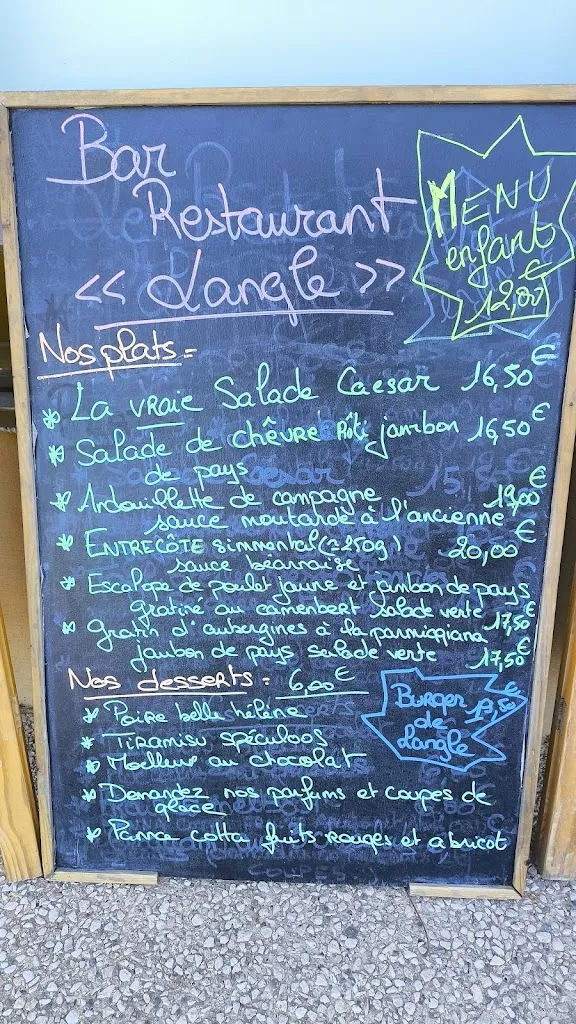 Bar
Restaurant
<< Langle >>
MENU
enfant
12,00€
Nos plats =
* La vraie Salade Caesar 16,50€
* Salade de chêvre Rôti jambon 16,50€
de pays
* Andouillette de campagne 19,00€
sauce moutarde à l'ancienne
* ENTRECÔTE simmental (≃250g) 20,00€
sauce béarnaise
* Escalope de poulet jaune et jambon de pays
gratiné au camembert salade verte 17,50€
* Gratin d'aubergines à la parmigiana
jambon de pays salade verte 17,50€
Nos desserts = 6,00€
* Poire belle hélène
* Tiramisu spéculoos
* Moelleux au chocolat
* Demandez nos parfums et coupes de
glace
* Panna cotta fruits rouges et abricot
Burger
de
Langle